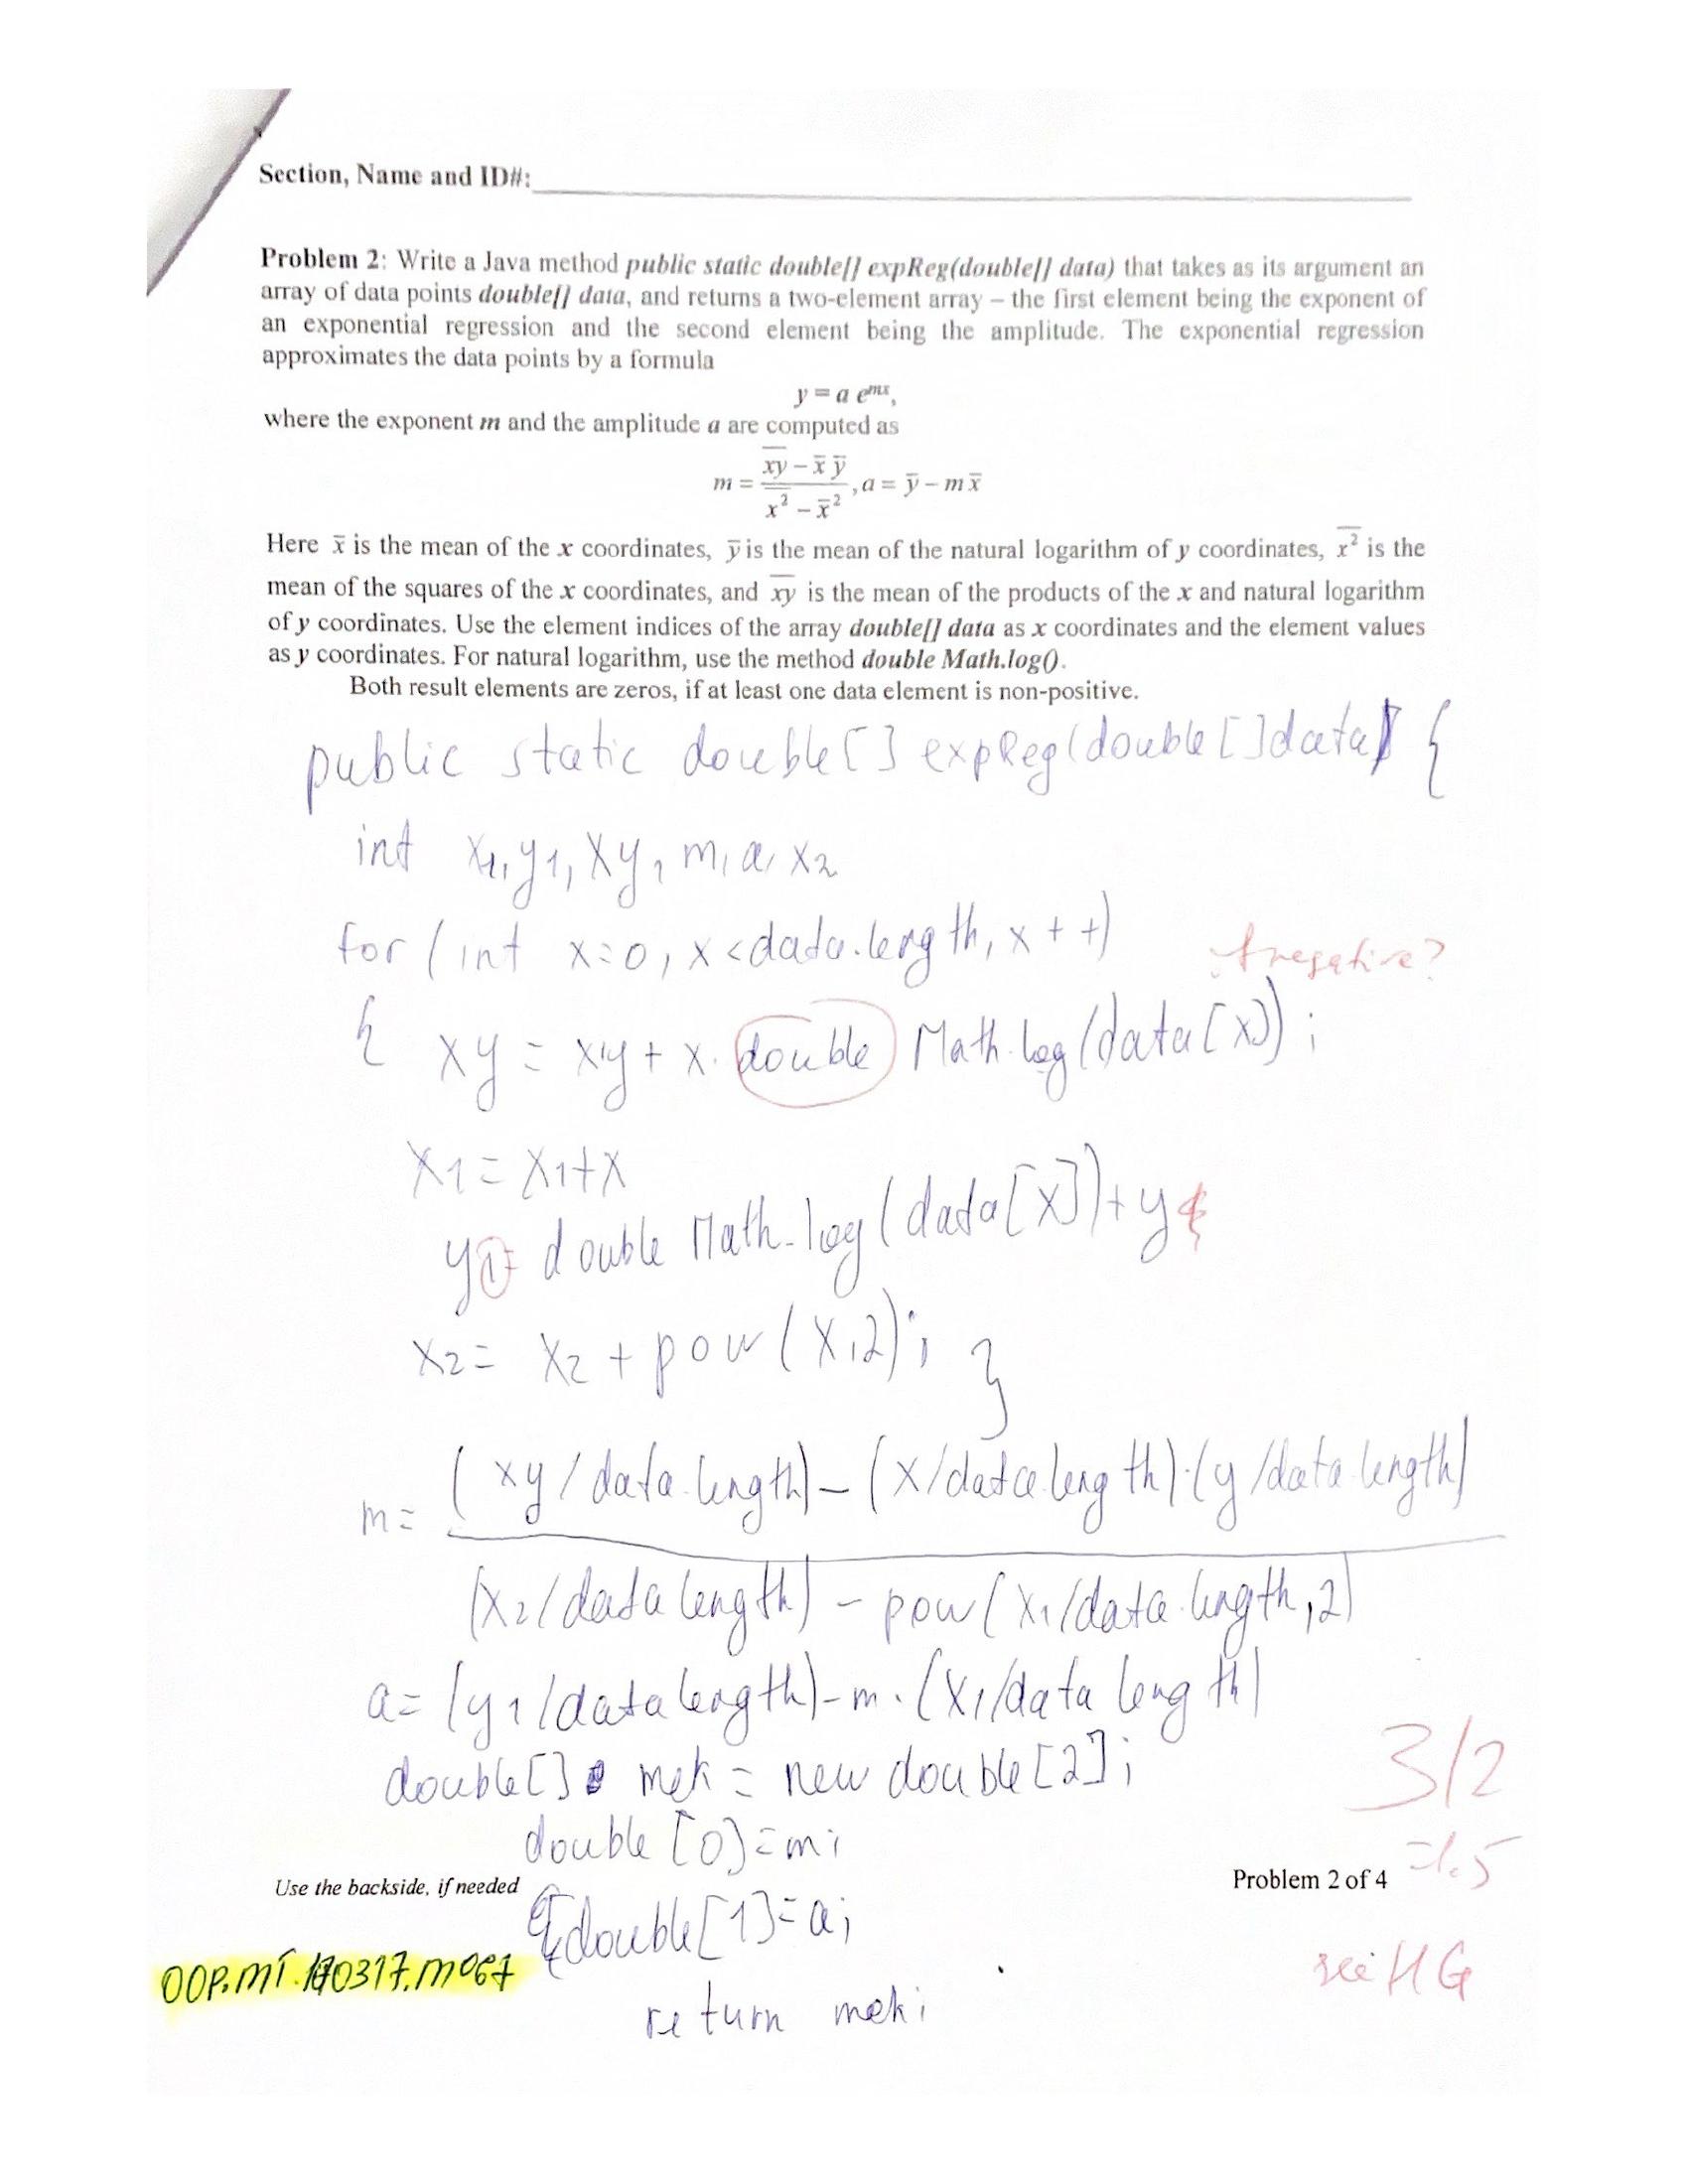 Section, Name and ID#:
Problem 2: Write a Java method public static double[] expReg(double[] data) that takes as its argument an
array of data points double[] data, and returns a two-element array – the first element being the exponent of
an exponential regression and the second element being the amplitude. The exponential regression
approximates the data points by a formula
y = a e^{mx},
where the exponent m and the amplitude a are computed as
m = \frac{\overline{xy} - \bar{x} \bar{y}}{\overline{x^2} - \bar{x}^2}, a = \bar{y} - m \bar{x}
Here \bar{x} is the mean of the x coordinates, \bar{y} is the mean of the natural logarithm of y coordinates, \overline{x^2} is the
mean of the squares of the x coordinates, and \overline{xy} is the mean of the products of the x and natural logarithm
of y coordinates. Use the element indices of the array double[] data as x coordinates and the element values
as y coordinates. For natural logarithm, use the method double Math.log().
Both result elements are zeros, if at least one data element is non-positive.
public static double[] expReg(double[]data) {
int x1, y1, xy, m, a, x2
for (int x=0, x<data.length, x++)
negative?
{ xy = xy + x · double Math.log(data[x]);
x1 = x1+x
y1= double Math.log(data[x])+y
x2 = x2 + pow(x,2); }
m= (xy/data.length) - (x/data.length)·(y/data.length)
(x2/data length) - pow(x1/data.length,2)
a= (y1/data length)-m·(x1/data length)
double[] mek = new double[2];
3/2
double [0]=m;
=1.5
Use the backside, if needed
Problem 2 of 4
double[1]=a;
OOP.MT.170317.M067
HG
return mek;